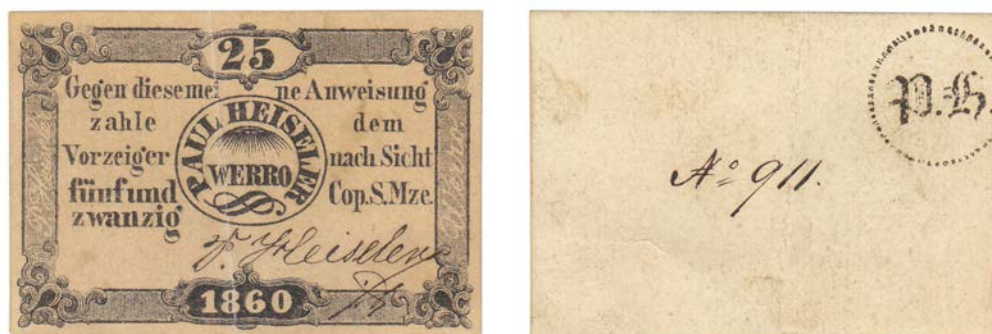 25
Gegen diese mei ne Anweisung
zahle dem
Vorzeiger nach Sicht
fünfund Cop.S.Mze.
zwanzig
PAUL HEISELER
WERRO
P. Heiseler
1860
P.H.
No 911.